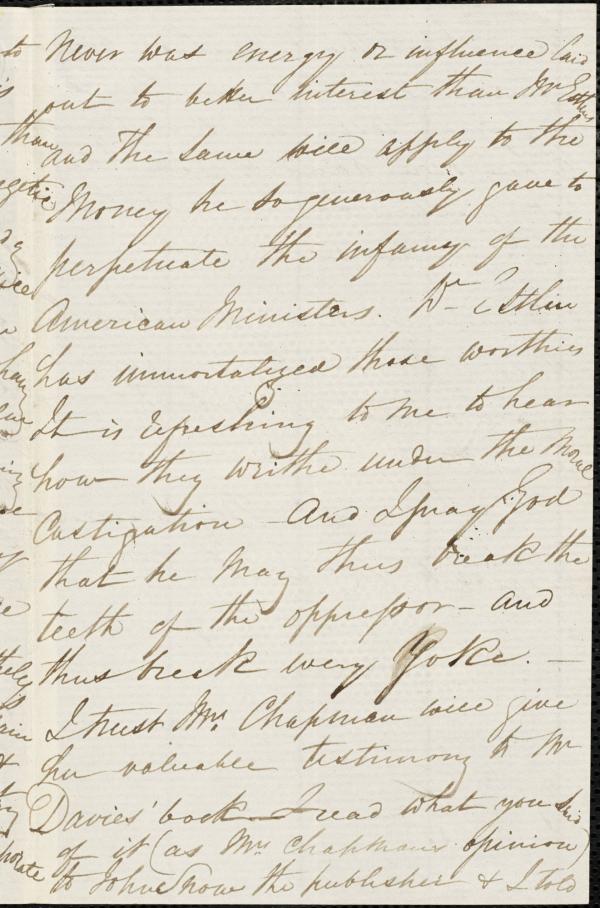 Never was energy or influence laid
out to better interest than Mr Estlin's
and the same will apply to the
Money he so generously gave to
perpetuate the infamy of the
American Ministers. Dr Estlin
has immortalized those worthies
It is refreshing to me to hear
how they writhe under the Moral
Castigation - And I pray God
that he may thus break the
teeth of the oppressor - and
thus break every Yoke. -
I trust Mrs. Chapman will give
her valuable testimony to Mr
Davies' book - I read what you said
of it (as Mrs Chapman's opinion)
to the publisher & I told